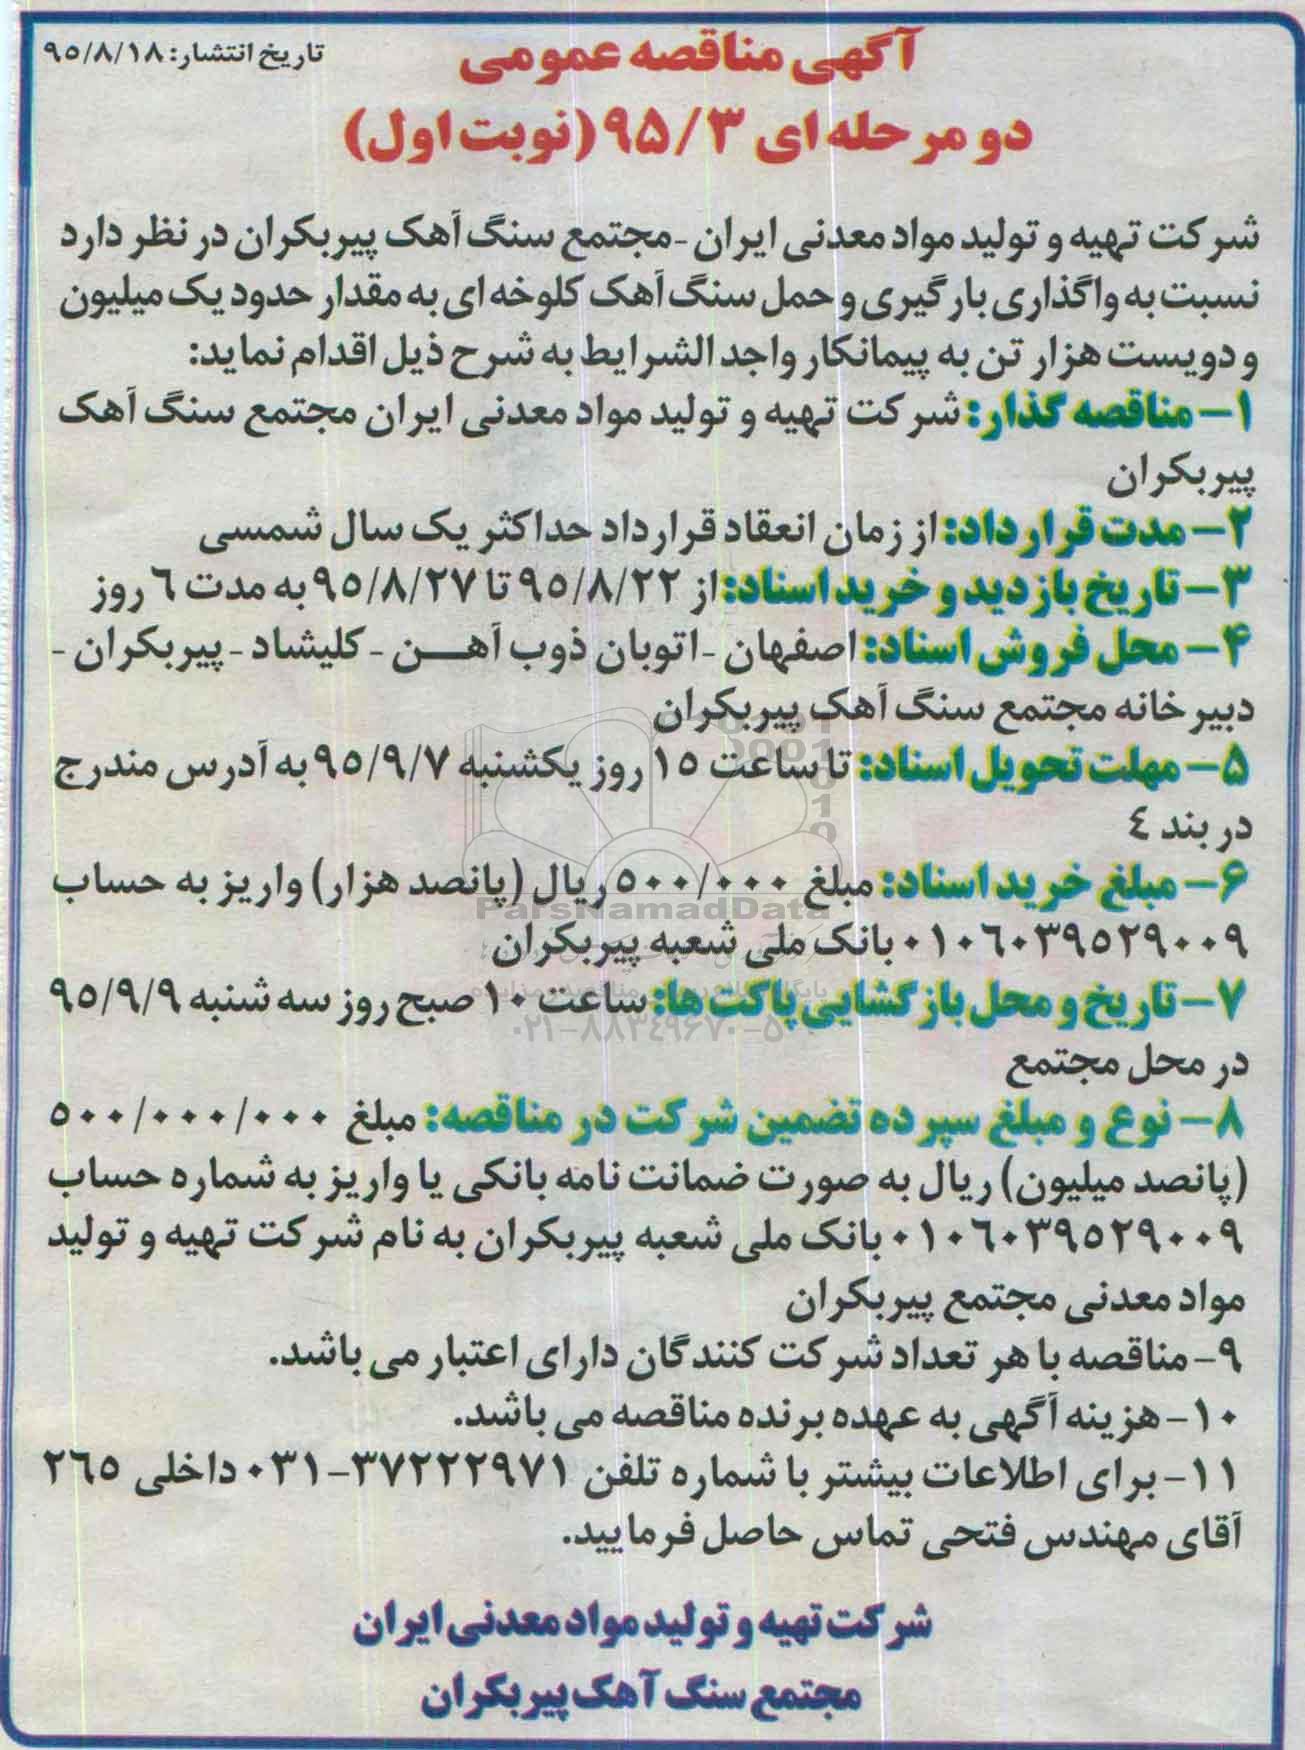 تاریخ انتشار: ۹۵/۸/۱۸
آگهی مناقصه عمومی
دو مرحله ای ۹۵/۳ (نوبت اول)
شرکت تهیه و تولید مواد معدنی ایران -مجتمع سنگ آهک پیربکران در نظر دارد
نسبت به واگذاری بارگیری و حمل سنگ آهک کلوخه ای به مقدار حدود یک میلیون
و دویست هزار تن به پیمانکار واجد الشرایط به شرح ذیل اقدام نماید:
۱- مناقصه گذار: شرکت تهیه و تولید مواد معدنی ایران مجتمع سنگ آهک
پیربکران
۲- مدت قرارداد: از زمان انعقاد قرارداد حداکثر یک سال شمسی
۳- تاریخ بازدید و خرید اسناد: از ۹۵/۸/۲۲ تا ۹۵/۸/۲۷ به مدت ۶ روز
۴- محل فروش اسناد: اصفهان -اتوبان ذوب آهن - کلیشاد - پیربکران -
دبیرخانه مجتمع سنگ آهک پیربکران
۵- مهلت تحویل اسناد: تا ساعت ۱۵ روز یکشنبه ۹۵/۹/۷ به آدرس مندرج
در بند ٤
۶- مبلغ خرید اسناد: مبلغ ۵۰۰/۰۰۰ ریال (پانصد هزار) واریز به حساب
۰۱۰۶۰۳۹۵۲۹۰۰۹ بانک ملی شعبه پیربکران
۷- تاریخ و محل بازگشایی پاکت ها: ساعت ۱۰ صبح روز سه شنبه ۹۵/۹/۹
در محل مجتمع
۸- نوع و مبلغ سپرده تضمین شرکت در مناقصه: مبلغ ۵۰۰/۰۰۰/۰۰۰
(پانصد میلیون) ریال به صورت ضمانت نامه بانکی یا واریز به شماره حساب
۰۱۰۶۰۳۹۵۲۹۰۰۹ بانک ملی شعبه پیربکران به نام شرکت تهیه و تولید
مواد معدنی مجتمع پیربکران
۹- مناقصه با هر تعداد شرکت کنندگان دارای اعتبار می باشد.
۱۰- هزینه آگهی به عهده برنده مناقصه می باشد.
۱۱- برای اطلاعات بیشتر با شماره تلفن ۳۷۲۲۲۹۷۱-۰۳۱ داخلی ۲۶۵
آقای مهندس فتحی تماس حاصل فرمایید.
شرکت تهیه و تولید مواد معدنی ایران
مجتمع سنگ آهک پیربکران
ParsNamadData